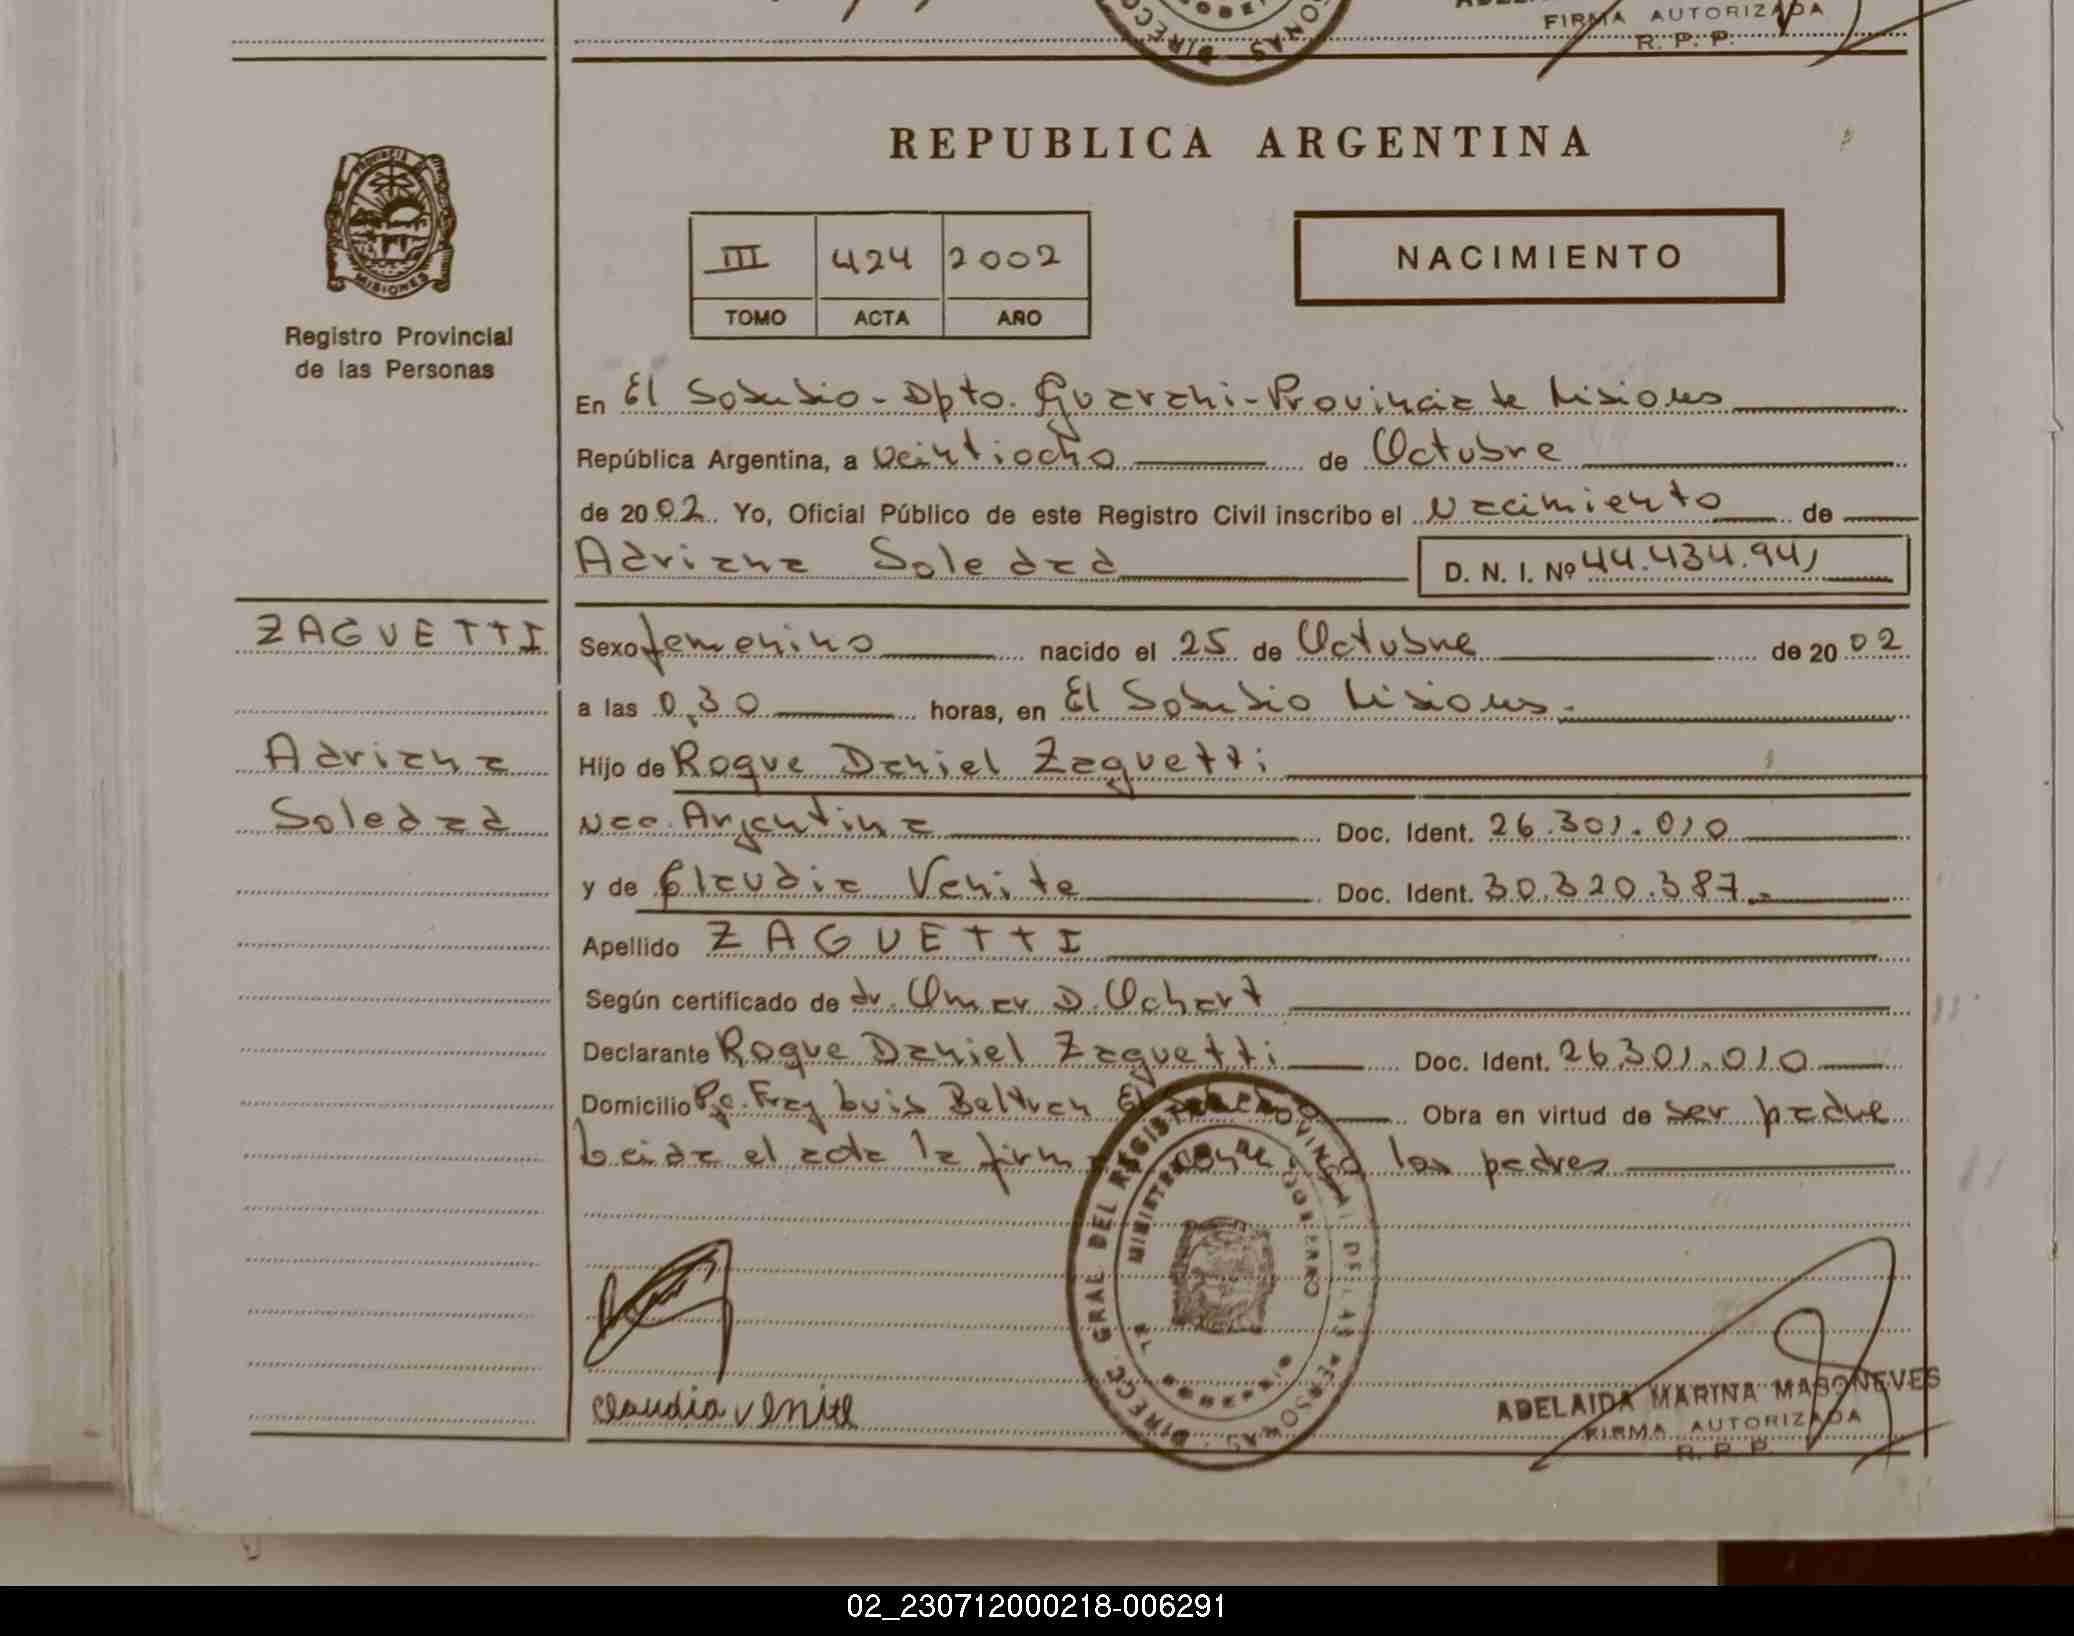 FIRMA AUTORIZADA
R. P. P.
REPUBLICA ARGENTINA
PROVINCIA DE MISIONES
Registro Provincial
de las Personas
III 424 2002
TOMO ACTA AÑO
NACIMIENTO
En El Soberbio - Dpto. Guarani - Provincia de Misiones
República Argentina, a veintiocho de Octubre
de 2002. Yo, Oficial Público de este Registro Civil inscribo el Nacimiento de
Adriana Soledad D. N. I. Nº 44.434.941
ZAGUETTI
Adriana
Soledad
Sexo femenino nacido el 25 de Octubre de 2002
a las 0,30 horas, en El Soberbio Misiones.-
Hijo de Roque Daniel Zaguetti
Nac. Argentina Doc. Ident. 26.301.010
y de Claudia Venite Doc. Ident. 30.320.387.-
Apellido ZAGUETTI
Según certificado de dr. Omar D. Ochart
Declarante Roque Daniel Zaguetti Doc. Ident. 26.301.010
Domicilio Pje. Fray Luis Beltran El Obra en virtud de ser padre
Leida el acta la firm los padres
DIRECC. GRAL DEL REGISTRO PROVINCIAL DE LAS PERSONAS
MINISTERIO DE GOBIERNO
claudia venite
ADELAIDA MARINA MASONEVES
FIRMA AUTORIZADA
R. P. P.
02_230712000218-006291